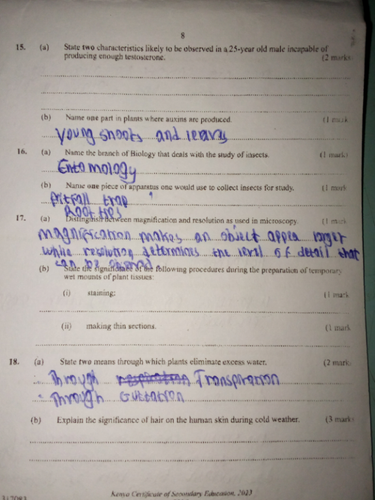 8
15. (a) State two characteristics likely to be observed in a 25-year old male incapable of
producing enough testosterone. (2 marks
(b) Name one part in plants where auxins are produced. (1 mark
Young shoots and leaves
16. (a) Name the branch of Biology that deals with the study of insects. (1 mark
Entomology
(b) Name one piece of apparatus one would use to collect insects for study. (1 mark
Pitfall trap
Root tips
17. (a) Distinguish between magnification and resolution as used in microscopy. (1 mark
magnification makes an object larger
while resolution determines the level of detail that
can be
(b) State the significance of the following procedures during the preparation of temporary
wet mounts of plant tissues:
(i) staining; (1 mark
(ii) making thin sections. (1 mark
18. (a) State two means through which plants eliminate excess water. (2 marks
Through Transpiration
Through Guttation
(b) Explain the significance of hair on the human skin during cold weather. (3 marks
Kenya Certificate of Secondary Education, 2023